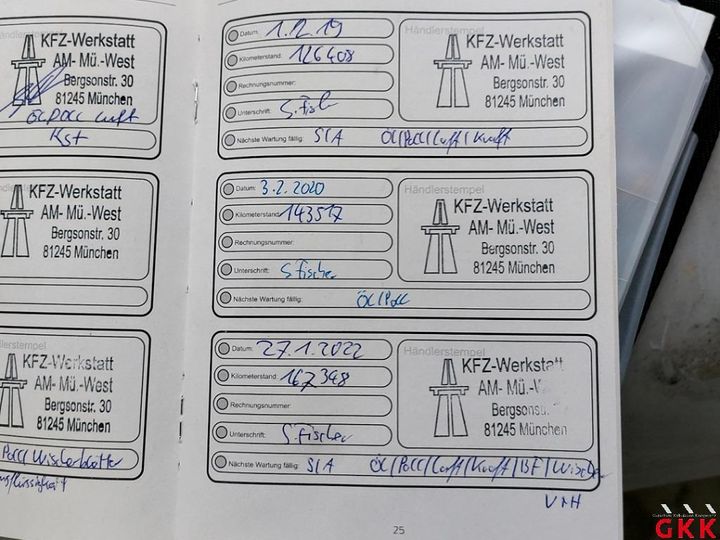 KFZ-Werkstatt
AM- Mü.-West
Bergsonstr. 30
81245 München
KFZ-Werkstatt
AM- Mü.-West
Bergsonstr. 30
81245 München
KFZ-Werkstatt
AM- Mü.-West
Bergsonstr. 30
81245 München
Datum: 1.12.19
Händlerstempel
Kilometerstand: 126408
Rechnungsnummer:
Unterschrift: S.Fischer
Nächste Wartung fällig: S/A Öl/Poll/Luft/Kraft
KFZ-Werkstatt
AM- Mü.-West
Bergsonstr. 30
81245 München
Datum: 3.2.2020
Händlerstempel
Kilometerstand: 143517
Rechnungsnummer:
Unterschrift: S.Fischer
Nächste Wartung fällig: Öl/Poll
KFZ-Werkstatt
AM- Mü.-West
Bergsonstr. 30
81245 München
Datum: 27.1.2022
Händlerstempel
Kilometerstand: 167398
Rechnungsnummer:
Unterschrift: S.Fischer
Nächste Wartung fällig: S/A Öl/Poll/Luft/Kraft/BF/Wischer
V+H
KFZ-Werkstatt
AM- Mü.-W
Bergsonstr. 30
81245 München
25
GKK